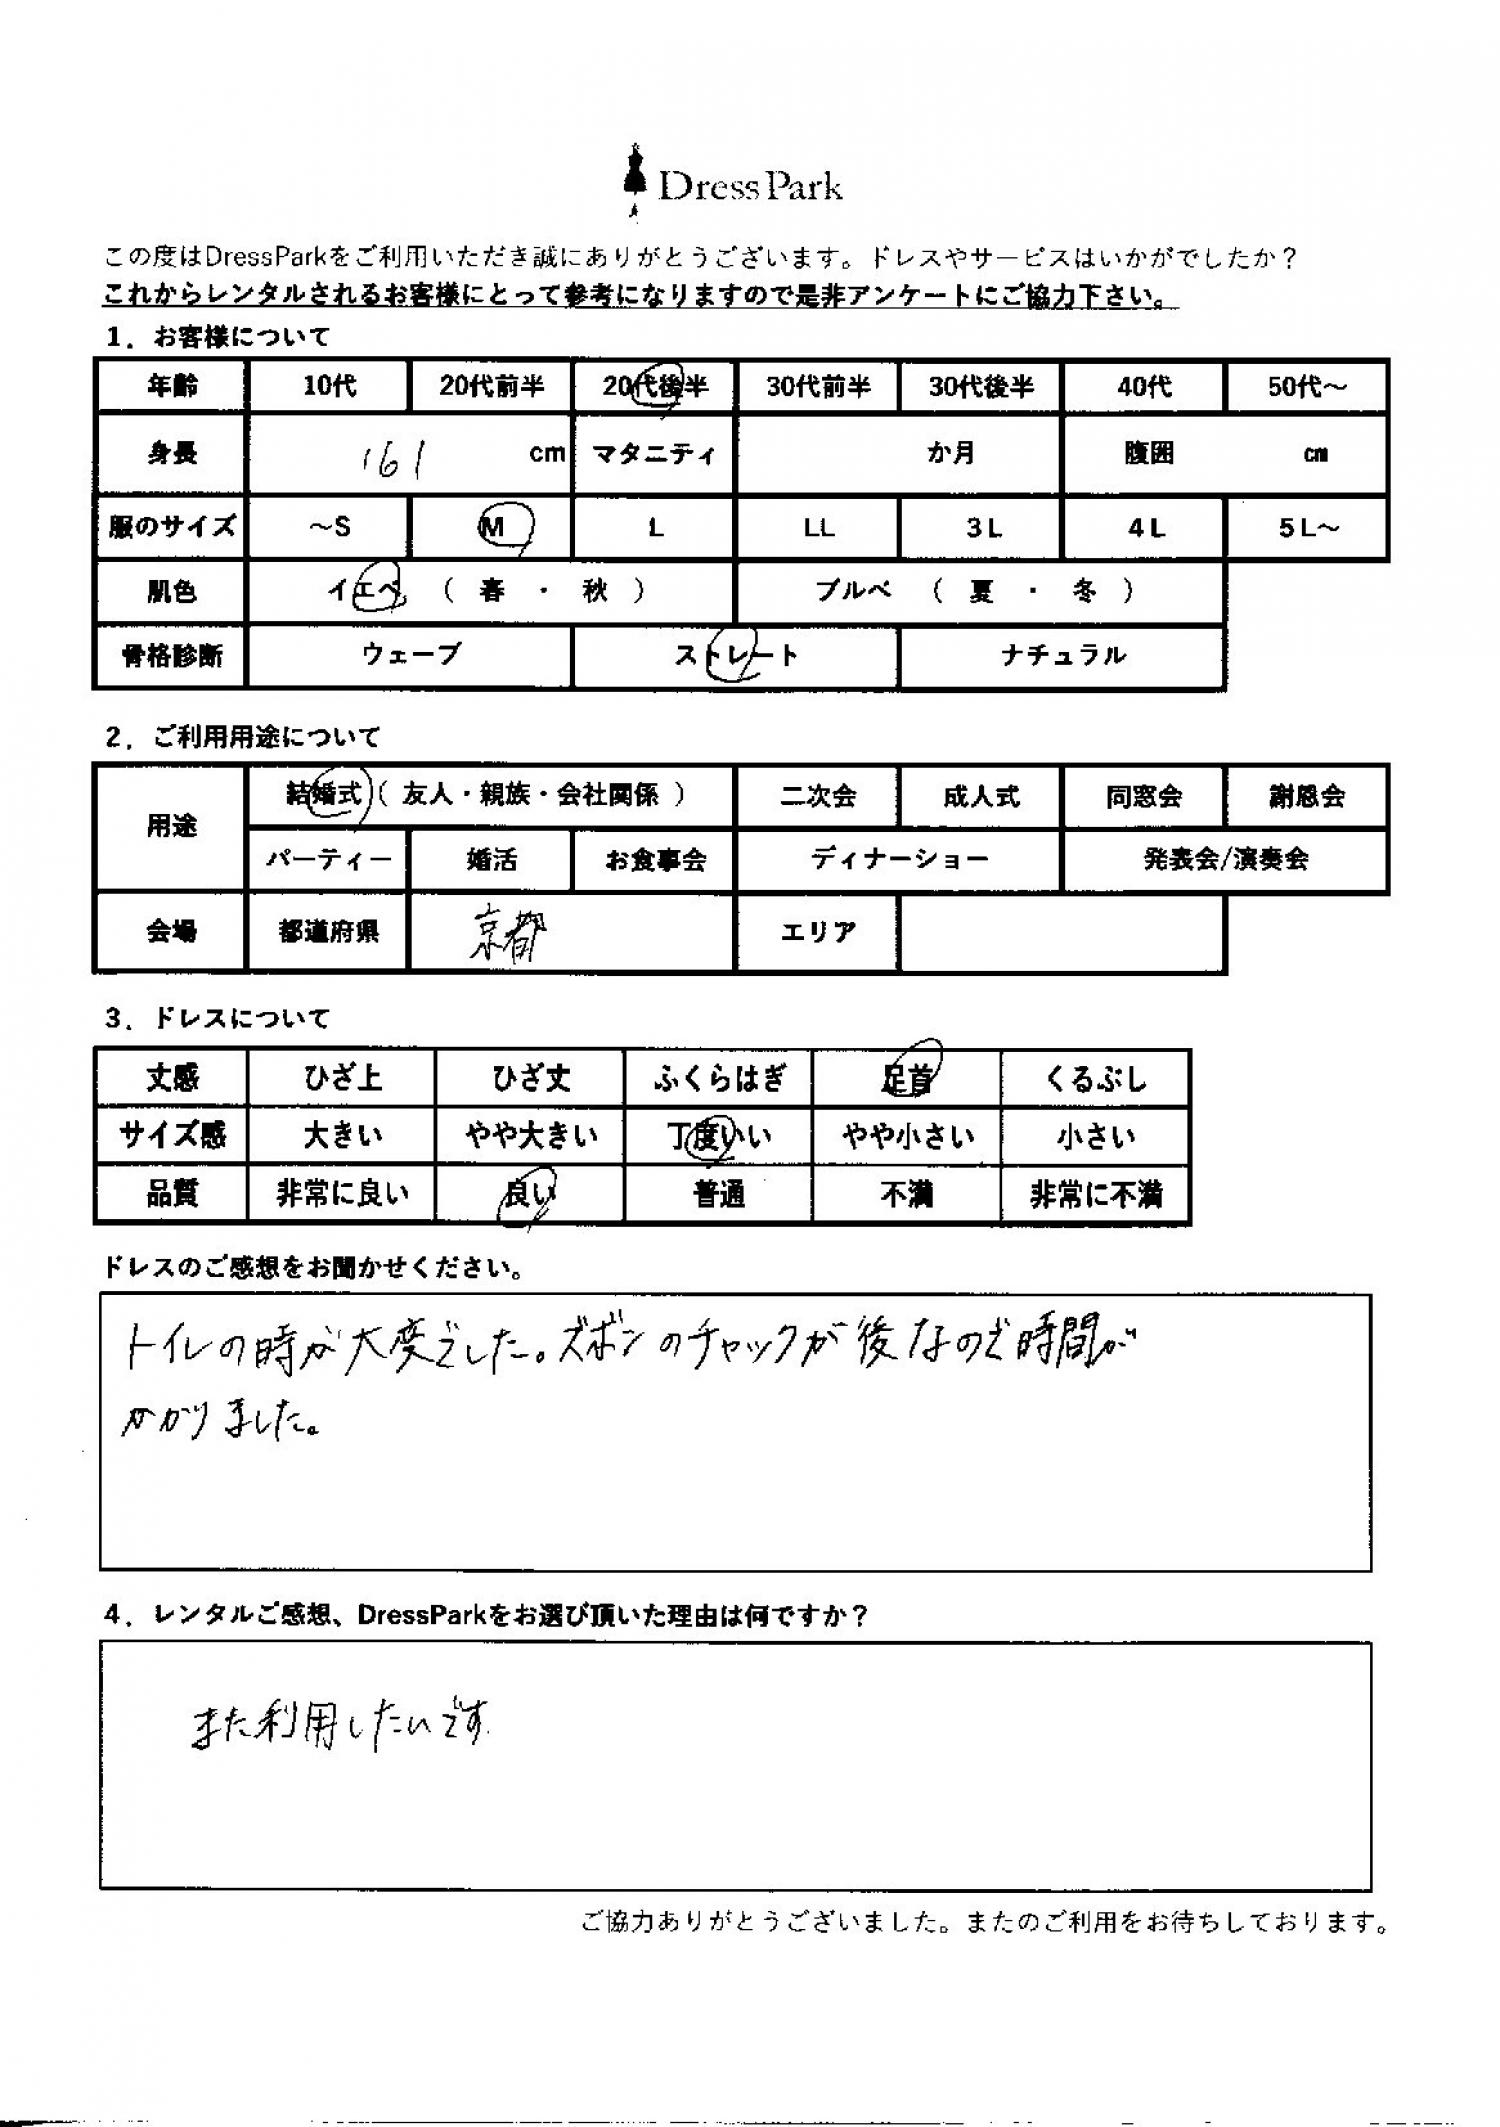 Dress Park
この度はDressParkをご利用いただき誠にありがとうございます。ドレスやサービスはいかがでしたか？
これからレンタルされるお客様にとって参考になりますので是非アンケートにご協力下さい。
1．お客様について
年齢 10代 20代前半 20代後半 30代前半 30代後半 40代 50代～
身長 161 cm マタニティ か月 腹囲 ㎝
服のサイズ ～S M L LL 3L 4L 5L～
肌色 イエベ （ 春 ・ 秋 ） ブルベ （ 夏 ・ 冬 ）
骨格診断 ウェーブ ストレート ナチュラル
2．ご利用用途について
用途 結婚式（ 友人・親族・会社関係 ） 二次会 成人式 同窓会 謝恩会
パーティー 婚活 お食事会 ディナーショー 発表会/演奏会
会場 都道府県 京都 エリア
3．ドレスについて
丈感 ひざ上 ひざ丈 ふくらはぎ 足首 くるぶし
サイズ感 大きい やや大きい 丁度いい やや小さい 小さい
品質 非常に良い 良い 普通 不満 非常に不満
ドレスのご感想をお聞かせください。
トイレの時が大変でした。ズボンのチャックが後なので時間が
かかりました。
4．レンタルご感想、DressParkをお選び頂いた理由は何ですか？
また利用したいです
ご協力ありがとうございました。またのご利用をお待ちしております。